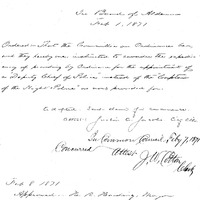 In Board of Aldermen
Feb 1, 1871
Ordered - That the Committee on Ordinances be,
and they hereby are instructed to consider the expedi-
ency of providing by Ordinance for the appointment of
a Deputy Chief of Police, instead of the Captain
of the Night Police as now provided for.
Adopted Sent down for concurrence
Attest: Justin E. Jacobs City Clk
In Common Council, Feby 7, 1871
Concurred
Attest J. W. Cotton
Clerk
Feb 8 1871
Approved Mayor